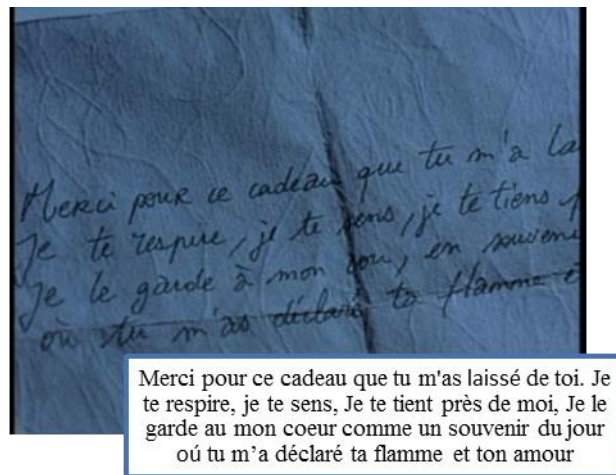 Merci pour ce cadeau que tu m'a la
Je te respire, je te sens, je te tiens p
Je le garde à mon cou, en souveni
où tu m'as déclaré ta flamme e
Merci pour ce cadeau que tu m'as laissé de toi. Je
te respire, je te sens, Je te tient près de moi, Je le
garde au mon coeur comme un souvenir du jour
oú tu m’a déclaré ta flamme et ton amour